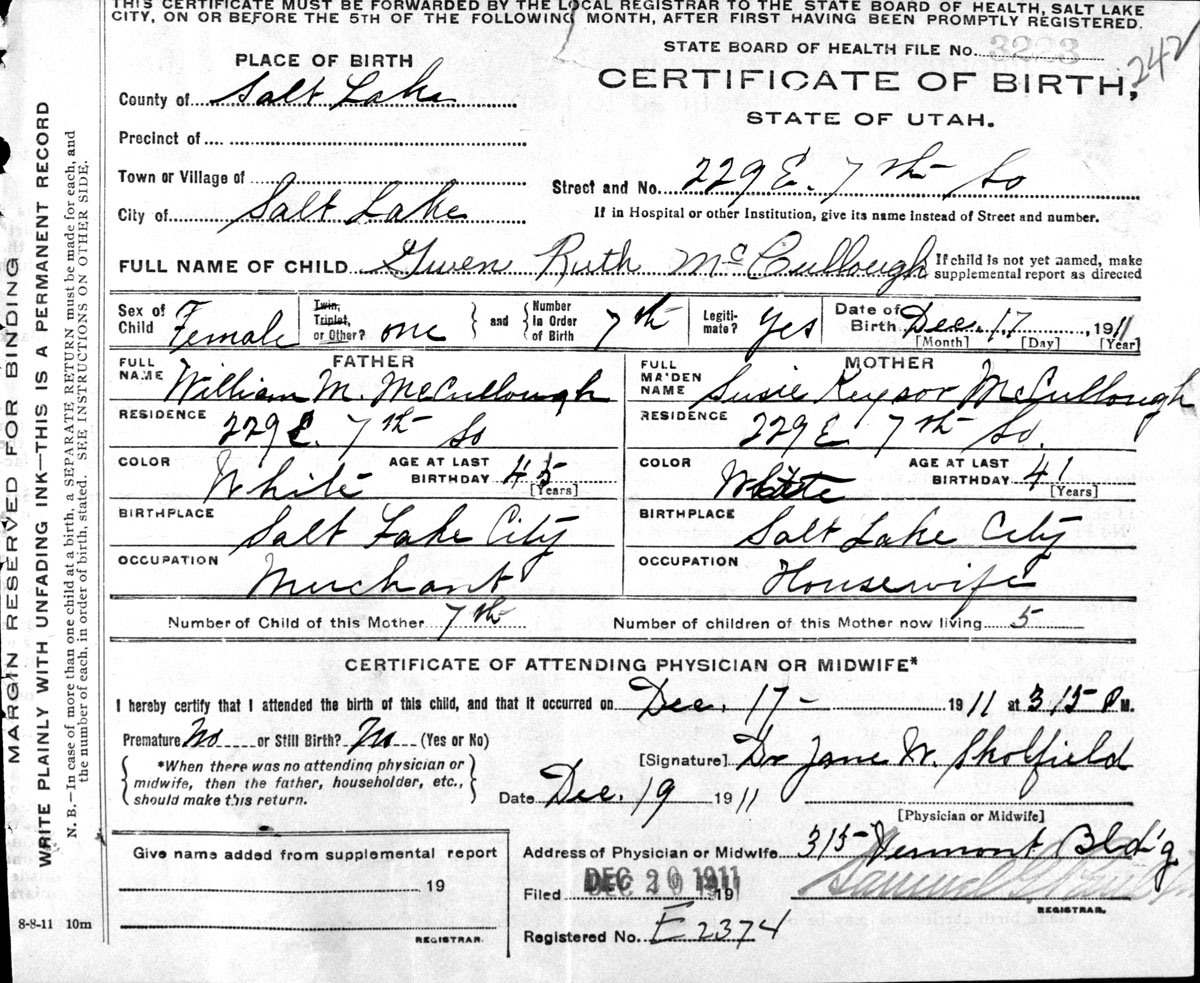 THIS CERTIFICATE MUST BE FORWARDED BY THE LOCAL REGISTRAR TO THE STATE BOARD OF HEALTH, SALT LAKE
CITY, ON OR BEFORE THE 5TH OF THE FOLLOWING MONTH, AFTER FIRST HAVING BEEN PROMPTLY REGISTERED.
MARGIN RESERVED FOR BINDING
WRITE PLAINLY WITH UNFADING INK—THIS IS A PERMANENT RECORD
N. B.—In case of more than one child at a birth, a SEPARATE RETURN must be made for each, and
the number of each, in order of birth, stated. SEE INSTRUCTIONS ON OTHER SIDE.
STATE BOARD OF HEALTH FILE No. 3223
242
CERTIFICATE OF BIRTH,
STATE OF UTAH.
PLACE OF BIRTH
County of Salt Lake
Precinct of
Town or Village of
City of Salt Lake
Street and No. 229 E. 7th So
If in Hospital or other Institution, give its name instead of Street and number.
FULL NAME OF CHILD Gwen Ruth McCullough
If child is not yet named, make
supplemental report as directed
Sex of Child Female
Twin, Triplet, or Other? one
and Number in Order of Birth 7th
Legitimate? Yes
Date of Birth Dec. 17, 1911
[Month] [Day] [Year]
FATHER
FULL NAME William M. McCullough
RESIDENCE 229 E. 7th So
COLOR White
AGE AT LAST BIRTHDAY 45
[Years]
BIRTHPLACE Salt Lake City
OCCUPATION Merchant
MOTHER
FULL MAIDEN NAME Susie Keysor McCullough
RESIDENCE 229 E 7th So.
COLOR White
AGE AT LAST BIRTHDAY 41
[Years]
BIRTHPLACE Salt Lake City
OCCUPATION Housewife
Number of Child of this Mother 7th
Number of children of this Mother now living 5
CERTIFICATE OF ATTENDING PHYSICIAN OR MIDWIFE*
I hereby certify that I attended the birth of this child, and that it occurred on Dec. 17- 1911 at 315 P M.
Premature No or Still Birth? No (Yes or No)
*When there was no attending physician or
midwife, then the father, householder, etc.,
should make this return.
[Signature] Dr Jane W. Skolfield
Date Dec. 19 1911
[Physician or Midwife]
Give name added from supplemental report
19
REGISTRAR.
Address of Physician or Midwife 315 Vermont Bld'g
Filed DEC 20 1911 191
Samuel G.
REGISTRAR.
Registered No. E 2374
8-8-11 10m